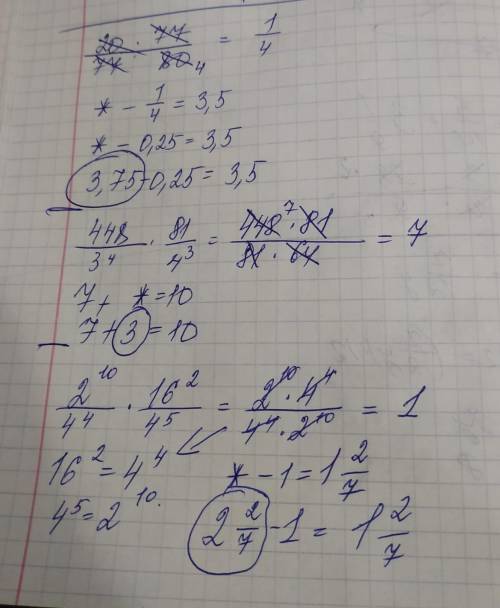 20 · 77 / 77 · 80 4 = 1/4
* - 1/4 = 3,5
* - 0,25 = 3,5
3,75 - 0,25 = 3,5
448/3^4 · 81/4^3 = 448 7 · 81 / 81 · 64 = 7
7 + * = 10
7 + 3 = 10
2^10/4^4 · 16^2/4^5 = 2^10 · 4^4 / 4^4 · 2^10 = 1
16^2 = 4^4
* - 1 = 1 2/7
4^5 = 2^10.
2 2/7 - 1 = 1 2/7